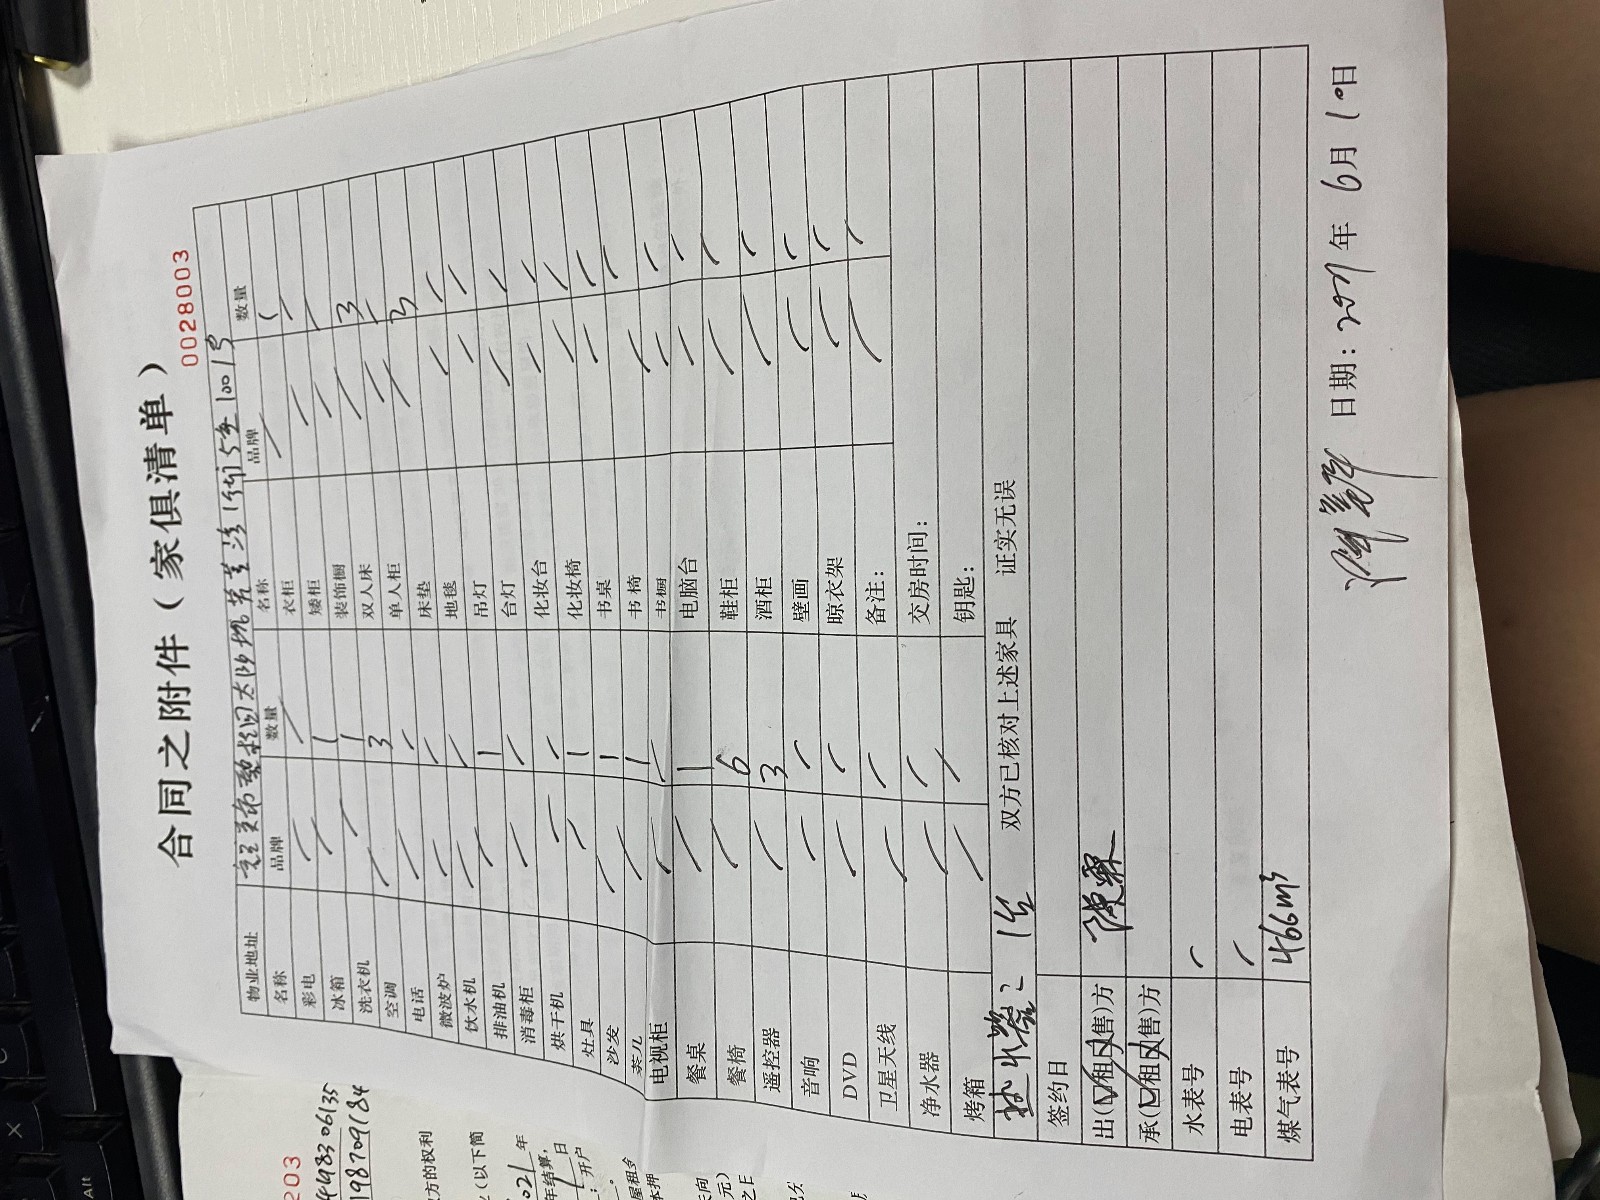 合同之附件（家俱清单）
0028003
物业地址
名称 品牌 数量 名称 品牌 数量
彩电 / / 衣柜 /
冰箱 / 1 矮柜 /
洗衣机 / 1 装饰橱 / 3
空调 / 3 双人床 /
电话 / / 单人柜 /
微波炉 / / 床垫 / /
饮水机 / / 地毯 / /
排油机 / 1 吊灯 / /
消毒柜 / / 台灯 / /
烘干机 / / 化妆台 / /
灶具 / 1 化妆椅 / /
沙发 / 1 书桌 / /
茶几 / 1 书椅 / /
电视柜 / / 书橱 / /
餐桌 / 1 电脑台 / /
餐椅 / 6 鞋柜 / /
遥控器 / 3 酒柜 / /
音响 / / 壁画 / /
DVD / / 晾衣架 / /
卫星天线 / / 备注：
净水器 / / 交房时间：
烤箱 / / 钥匙：
热水器 1台 双方已核对上述家具 证实无误
签约日
出(☑租□售)方
承(☑租□售)方
水表号 /
电表号 /
煤气表号 466m³
日期：2021年 6月 10日
203
44983 06135
198709184
方的权利
（以下简
021年
年结算，
日
；开户
屋租金
本押
元）
之日